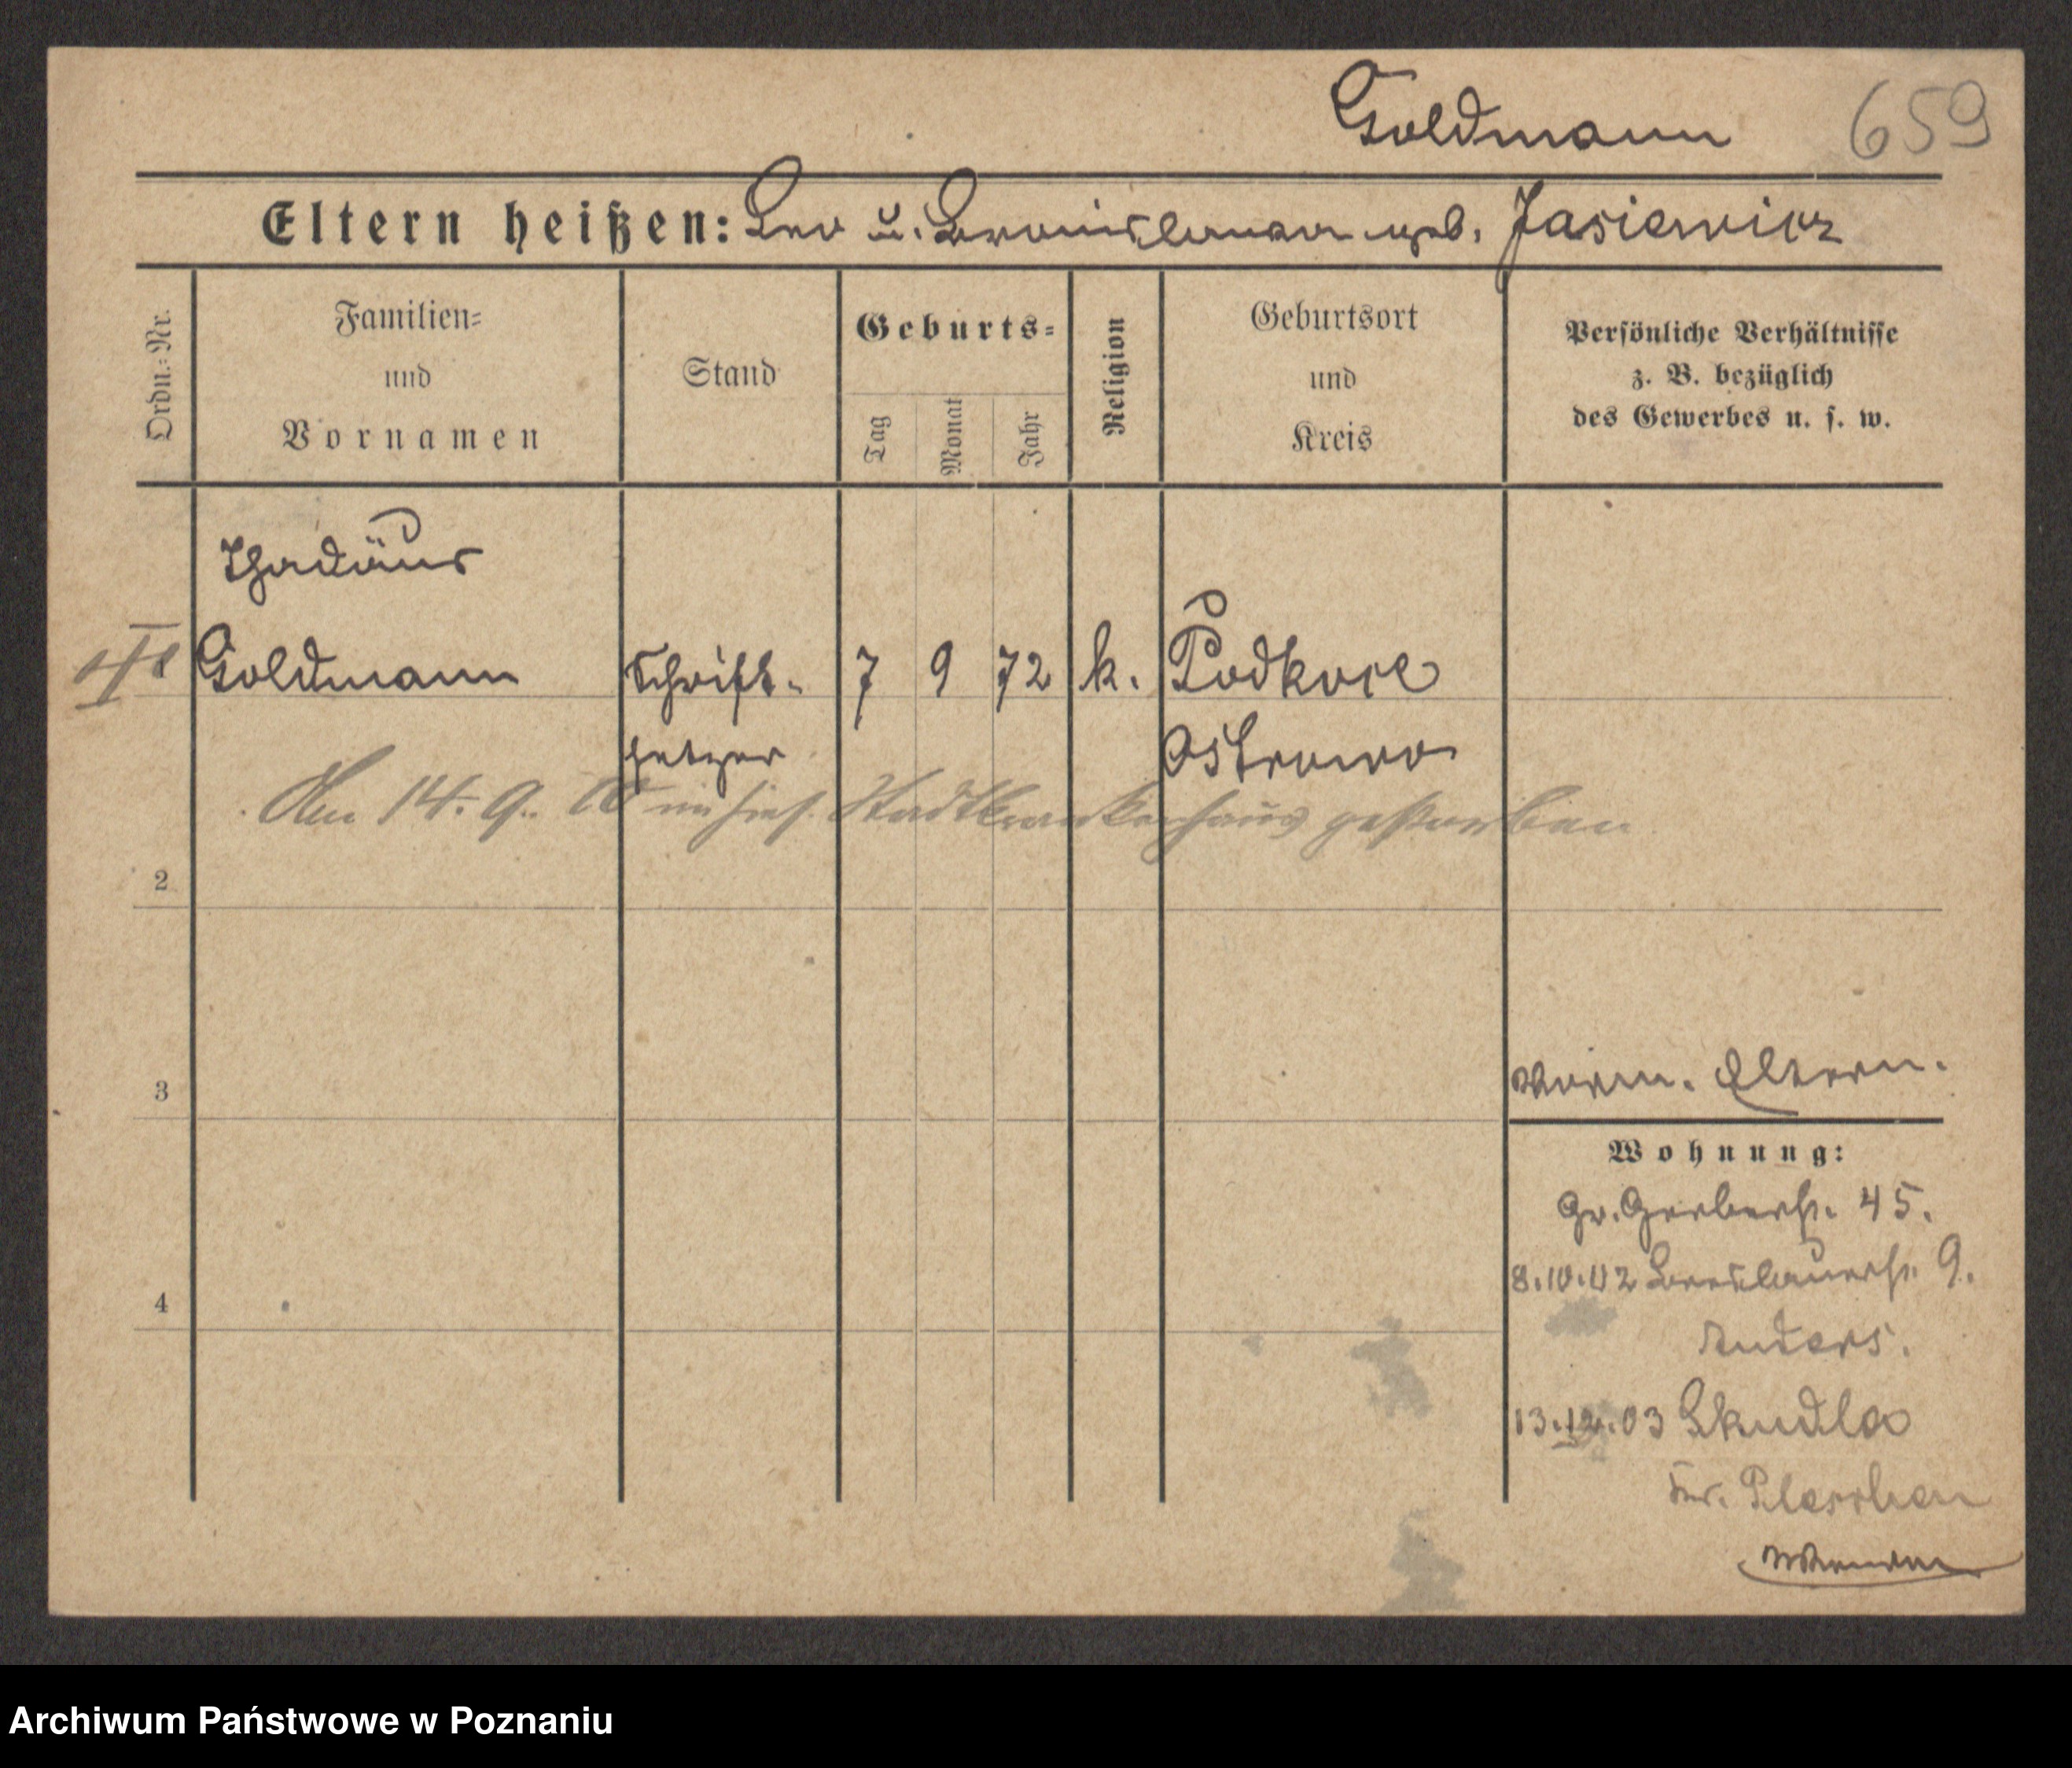 Goldmann 659
Eltern heißen: Leo u. Bronislawa geb. Jasiewicz
Ordn.-Nr.
Familien-
und
Vornamen
Stand
Geburts-
Tag
Monat
Jahr
Religion
Geburtsort
und
Kreis
Persönliche Verhältnisse
z. B. bezüglich
des Gewerbes u. s. w.
Thadäus
Goldmann Schrift- 7 9 72 k. Podkoce
setzer Ostrowo
14. 9. im hies. Stadtkrankenhaus gestorben
2
3
Eltern.
Wohnung:
Gr. Gerberstr. 45.
8.10.02 Breslauerstr. 9.
Anders.
13.12.03 Skudla
Kr. Pleschen
4
Archiwum Państwowe w Poznaniu